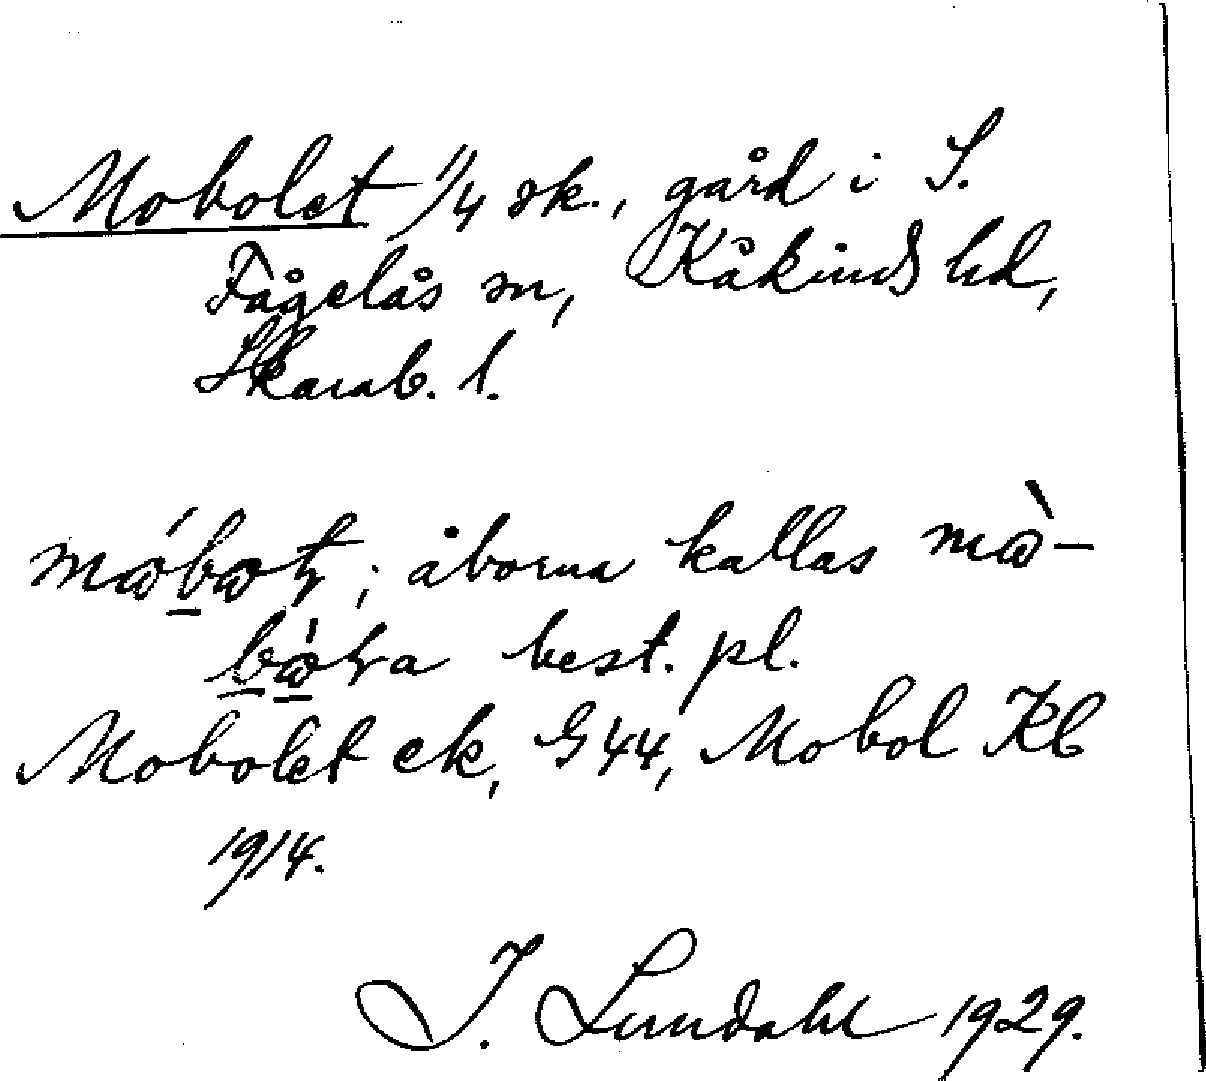 Mobolet 1/4 sk., gård i S.
Fågelås sn, Kåkinds hd,
Skarab. l.
; åborna kallas
best. pl.
Mobolet ek, G 44, Mobol Kb
1914.
I. Lundahl 1929.